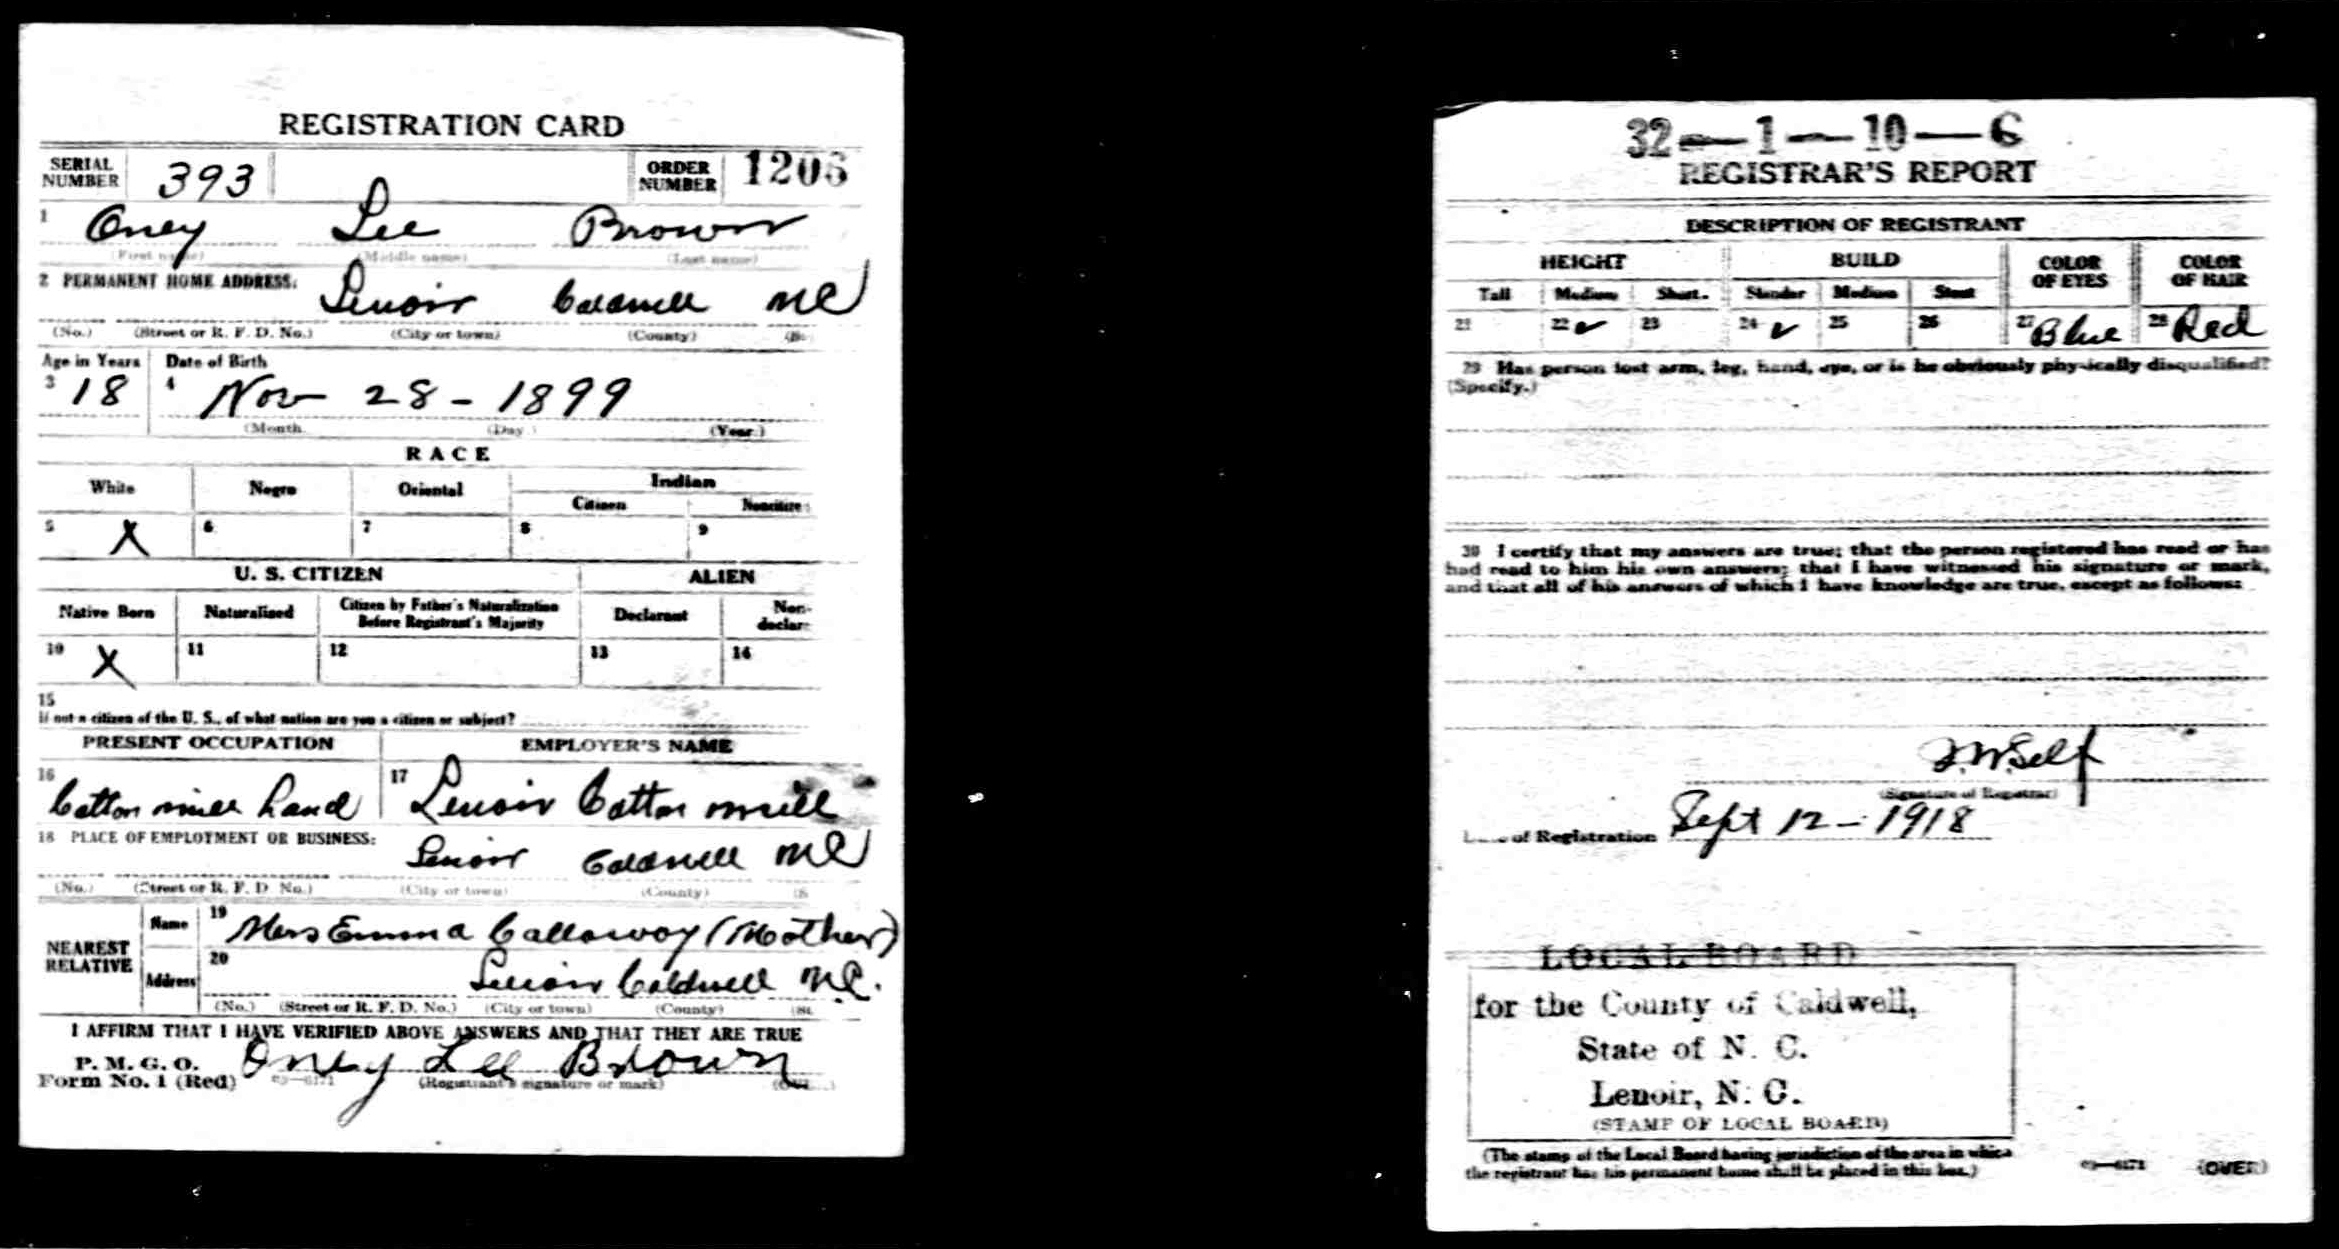 REGISTRATION CARD
SERIAL NUMBER 393 ORDER NUMBER 1206
1 Oney Lee Brown
(First name) (Middle name) (Last name)
2 PERMANENT HOME ADDRESS:
Lenoir Caldwell NC
(No.) (Street or R. F. D. No.) (City or town) (County)
Age in Years Date of Birth
3 18 4 Nov 28 - 1899
(Month. (Day.) (Year.)
RACE
White Negro Oriental Indian
Citizen Noncitize
5 X 6 7 8 9
U. S. CITIZEN ALIEN
Native Born Naturalized Citizen by Father's Naturalization Before Registrant's Majority Declarant Non-declar
10 X 11 12 13 14
15
If not a citizen of the U. S., of what nation are you a citizen or subject?
PRESENT OCCUPATION EMPLOYER'S NAME
16 Cotton mill hand 17 Lenoir Cotton mill
18 PLACE OF EMPLOYMENT OR BUSINESS:
Lenoir Caldwell NC
(No.) (Street or R. F. D. No.) (City or town) (County) (S
NEAREST RELATIVE Name 19 Mrs Emma Calloway (Mother)
Address 20 Lenoir Caldwell N.C.
(No.) (Street or R. F. D. No.) (City or town) (County) (St.
I AFFIRM THAT I HAVE VERIFIED ABOVE ANSWERS AND THAT THEY ARE TRUE
P. M. G. O.
Form No. 1 (Red) 03—6171 Oney Lee Brown
(Registrant's signature or mark) (OVER)
32—1—10—C
REGISTRAR'S REPORT
DESCRIPTION OF REGISTRANT
HEIGHT BUILD COLOR OF EYES COLOR OF HAIR
Tall Medium Short. Slender Medium Stout
21 22 ✓ 23 24 ✓ 25 26 27 Blue 28 Red
29 Has person lost arm, leg, hand, eye, or is he obviously physically disqualified?
(Specify.)
30 I certify that my answers are true; that the person registered has read or has
had read to him his own answers; that I have witnessed his signature or mark,
and that all of his answers of which I have knowledge are true, except as follows:
J.W. Self
(Signature of Registrar)
of Registration Sept 12 - 1918
LOCAL BOARD
for the County of Caldwell,
State of N. C.
Lenoir, N. C.
(STAMP OF LOCAL BOARD)
(The stamp of the Local Board having jurisdiction of the area in which
the registrant has his permanent home shall be placed in this box.)
03—6171 (OVER)